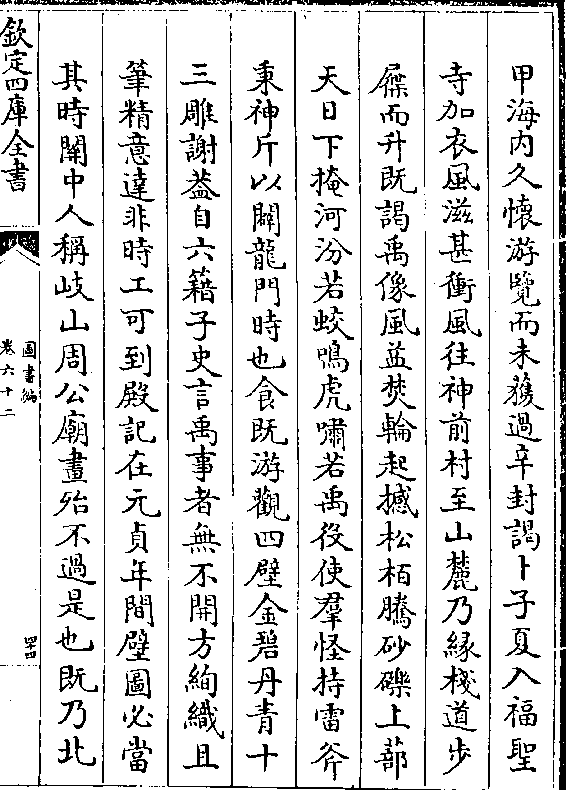 甲海内久懐游覽而未獲過辛封謁卜子夏入福聖
寺加衣風滋甚衝風往神前村至山麓乃縁棧道步
屧而升既謁禹像風益焚輪起撼松栢騰砂礫上蔀
天日下掩河汾若蛟鳴虎嘯若禹役使羣怪持雷斧
秉神斤以闢龍門時也食既游觀四壁金碧丹青十
三雕謝葢自六籍子史言禹事者無不開方絢織且
筆精意達非時工可到殿記在元貞年間壁圖必當
其時關中人稱岐山周公廟畫殆不過是也既乃北
欽定四庫全書
圖書編
卷六十二
四十四